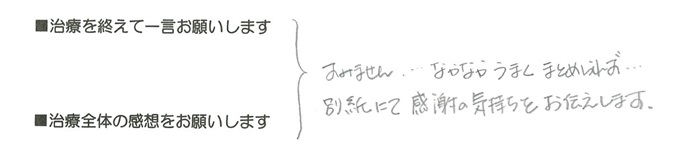 ■治療を終えて一言お願いします
すみません…なかなかうまくまとめられず…
別紙にて感謝の気持ちをお伝えします。
■治療全体の感想をお願いします